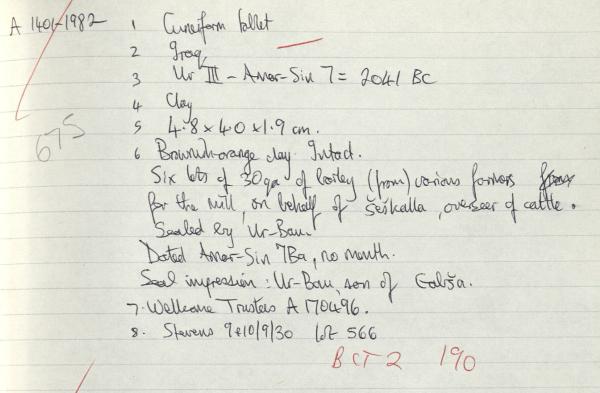 A 1401-1982
1 Cuneiform tablet
2 Iraq,
3 Ur III - Amar-Sin 7 = 2041 BC
4 Clay
5 4.8 x 4.0 x 1.9 cm.
675
6 Brownish-orange clay Intact.
Six lots of 30 qa of barley (from) various farmers
for the mill, on behalf of Šeškalla, overseer of cattle.
Sealed by Ur-Bau.
Dated Amar-Sin 7Ba, no month.
Seal impression: Ur-Bau, son of
7. Wellcome Trustees A 170496.
8. Stevens 9+10/9/30 lot 566
BCT 2 190